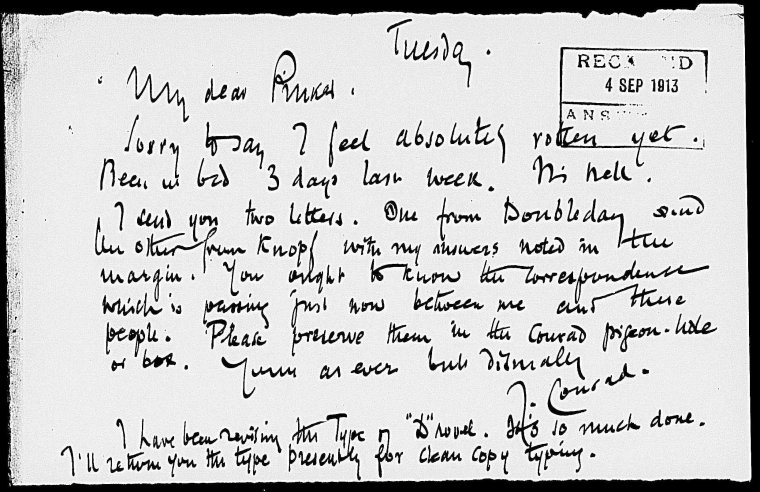 Tuesday.
REC D
4 SEP 1913
ANS
My dear Pinker.
Sorry to say I feel absolutely rotten yet.
Been in bed 3 days last week. It's hell.
I send you two letters. One from Doubleday and
the other from Knopf with my answers noted in the
margin. You ought to know the correspondence
which is passing just now between me and these
people. Please preserve them in the Conrad pigeon-hole
or box. Yours as ever but dismally
J. Conrad.
I have been revising the Type of "D" novel. It's so much done.
I'll return you the type presently for clean copy typing.